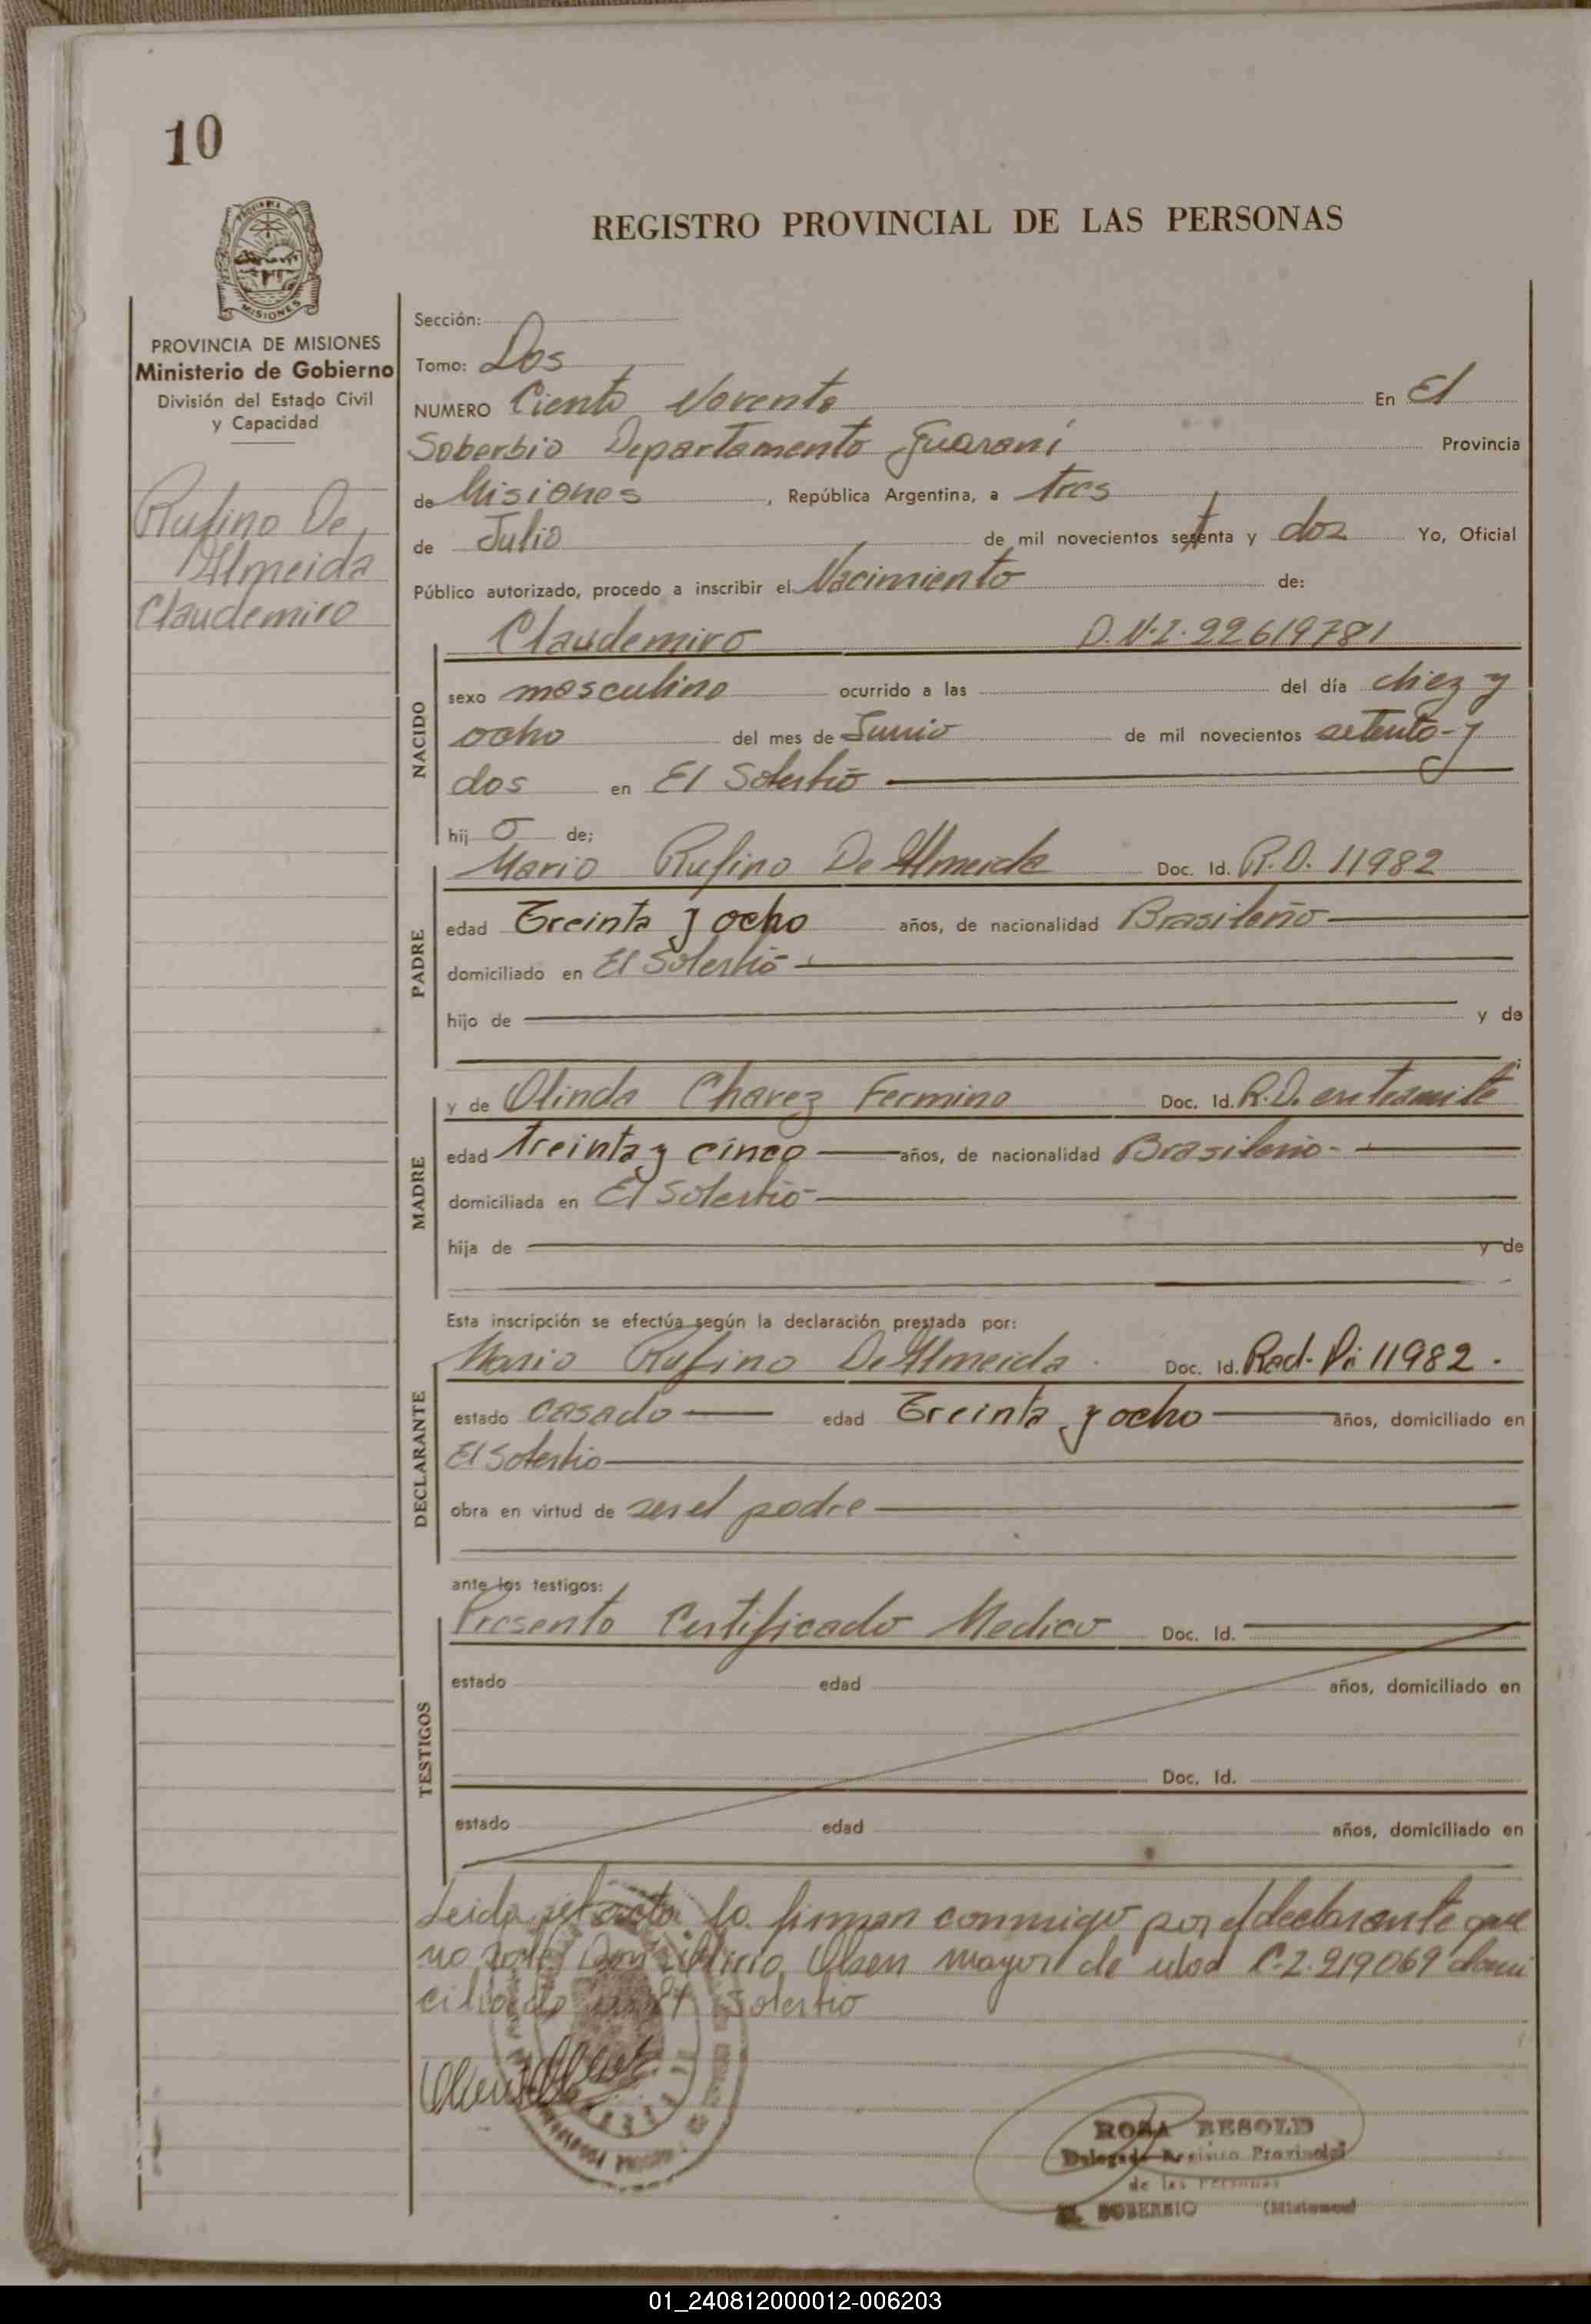 10
REGISTRO PROVINCIAL DE LAS PERSONAS
PROVINCIA DE
MISIONES
PROVINCIA DE MISIONES
Ministerio de Gobierno
División del Estado Civil
y Capacidad
Rufino De
Almeida
Claudemiro
Sección:
Tomo: Dos
NUMERO Ciento Noventa En El
Soberbio Departamento Guaraní Provincia
de Misiones, República Argentina, a tres
de Julio de mil novecientos setenta y dos Yo, Oficial
Público autorizado, procedo a inscribir el Nacimiento de:
NACIDO
Claudemiro D.N.I. 22619781
sexo masculino ocurrido a las del día diez y
ocho del mes de Junio de mil novecientos setenta y
dos en El Soberbio
hijo de:
PADRE
Mario Rufino De Almeida Doc. Id. R.D. 11982
edad Treinta y ocho años, de nacionalidad Brasileño
domiciliado en El Soberbio
hijo de y de
MADRE
y de Olinda Chavez Fermino Doc. Id. R.D. en tramite
edad treinta y cinco años, de nacionalidad Brasileño
domiciliada en El Soberbio
hija de y de
Esta inscripción se efectúa según la declaración prestada por:
DECLARANTE
Mario Rufino De Almeida Doc. Id. Rad. Di 11982.
estado casado edad Treinta y ocho años, domiciliado en
El Soberbio
obra en virtud de ser el padre
ante los testigos:
TESTIGOS
Presento Certificado Medico Doc. Id.
estado edad años, domiciliado en
Doc. Id.
estado edad años, domiciliado en
Leida el acta la firman conmigo por el declarante que
no Olsen mayor de edad C.I. 219069 domi
ciliado en El Soberbio
ROSA BESOLD
Delegada Registro Provincial
de las Personas
EL SOBERBIO (Misiones)
01_240812000012-006203